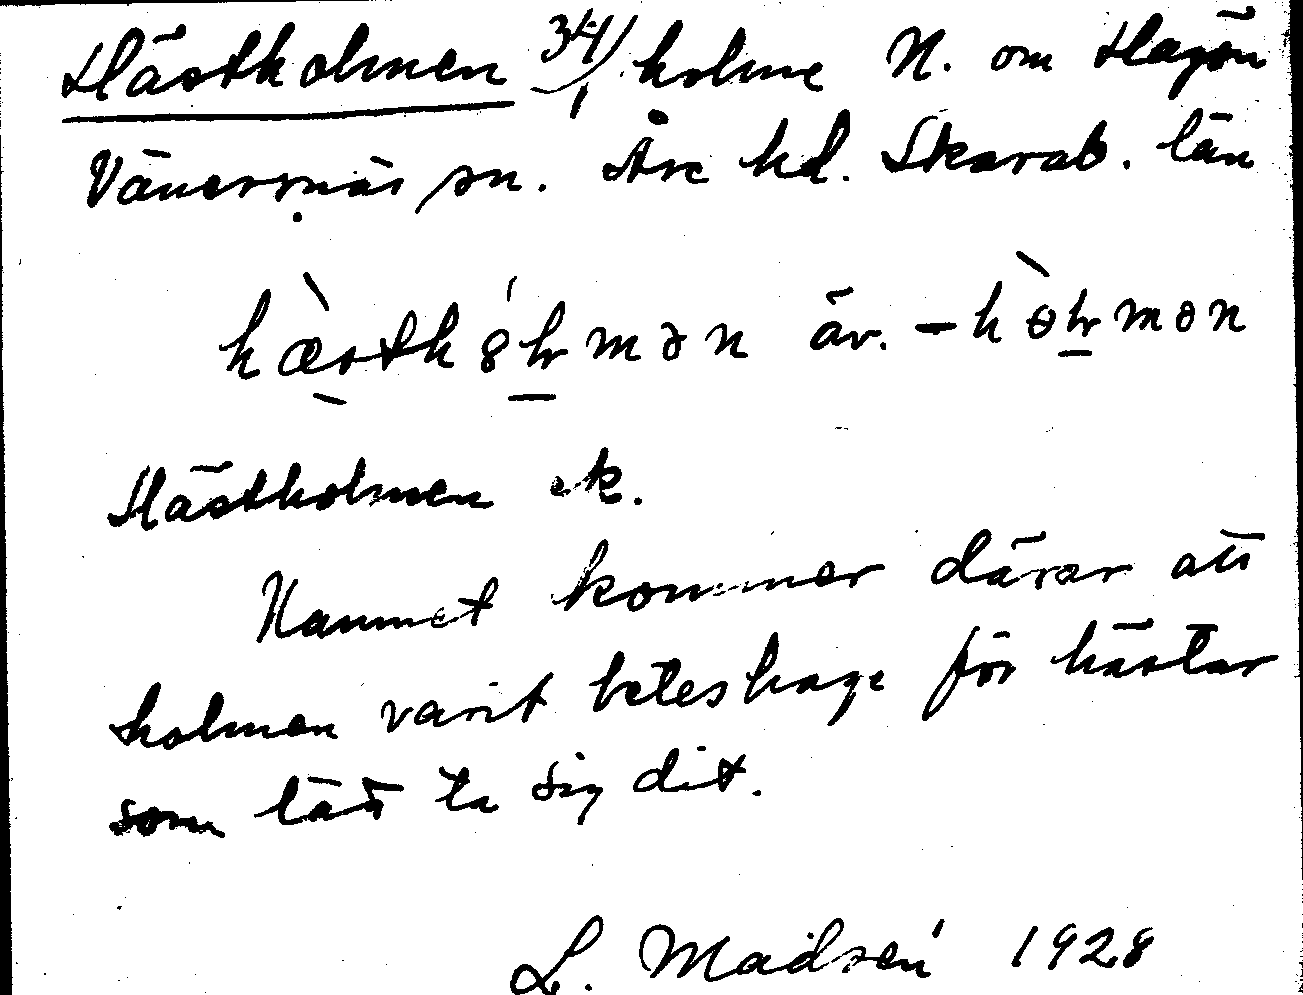 Hästholmen 34/1 holme N. om Hagön
Vänersnäs sn. Åse hd. Skarab. län
hæsthȯl̠mən äv. -hòl̠mən
Hästholmen ek.
Namnet kommer därav att
holmen varit beteshage för hästar
som lätt ta sig dit.
L. Madsén 1928